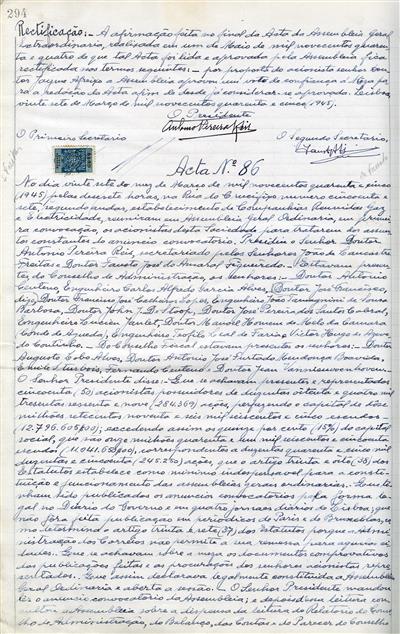 294
Rectificação:- A afirmação feita no final da Acta da Assembleia Geral
Extraordinaria, realizada em um de Maio de mil novecentos quaren-
ta e quatro de que tal Acta foi lida e aprovada pela Assembleia fica
rectificada nos termos seguintes: - por proposta do acionista senhor Dou-
tor a Assembleia aprovou um voto de confiança á Meza pa-
ra a redacção da Acta afim de desde já considerar-se aprovada. Lisboa,
vinte sete de Março de mil novecentos quarenta e cinco (1945).
O Presidente
António Pereira Reis
O Primeiro Secretário
O Segundo Secretário,
Acta Nº 86
No dia vinte sete do mez de Março de mil novecentos quarenta e cinco
(1945) pelas dezasete horas, na Rua do Crucifixo numero cincoenta e
sete, segundo andar, estabelecimento da Companhia Reunidas Gaz
e Electricidade, reuniram em Assembleia Geral Ordinaria, em primei-
ra convocação, os acionistas desta Sociedade para tratarem dos assun-
tos constantes do anuncio convocatorio. Presidiu o Senhor Doutor
Antonio Pereira Reis, secretariado pelos Senhores João da Camara
e Doutor Fausto José do Amaral Figueiredo. Estiveram presen-
tes do Conselho de Administração, os senhores:- Doutor Antonio
Centeno, Engenheiro Carlos Alfredo Garcia Alves, (Doutor José Francisco,
digo, Doutor Francisco José Lopes, Engenheiro José de Sousa
Barbosa, Doutor John J. D. Stroop, Doutor José Pereira dos Santos Cabral,
Engenheiro Lucien Doutor Manoel Homem de Melo da Camara
Conde de Agueda, Engenheiro Teofilo Leal de Faria e Victor Hugo de Azeve-
do Coutinho. - Do Conselho Fiscal estavam presentes os senhores:- Doutor
Augusto Lobo Alves, Doutor Antonio José Furtado Mendonça
Fernando Centeno e Doutor Jean
O Senhor Presidente disse:- Que se achavam presentes e representados
cincoenta, (50) acionistas possuidores de duzentos oitenta e quatro mil
trescentos sessenta e nove, (284.369) ações, perfazendo o capital de doze
milhões setecentos noventa e seis mil seiscentos e cinco escudos
(12.796.605$00); excedendo assim os quinze por cento (15%) do capital
social, que são onze milhões quarenta e um mil seiscentos e cincoenta
escudos (11.041.650$00), correspondentes a duzentos quarenta e cinco mil
ações, que o artigo trinta e oito (38) dos
Estatutos estabelece como minimo indispensavel para a consti-
tuição e funcionamento das assembleias geraes ordinarias. - Que ti-
nham sido publicados os anuncios convocatorios pela forma le-
gal no Diario do Governo e em quatro jornaes diarios de Lisboa; que
não fôra feita publicação em periodicos de Paris e de Bruxelas, co-
mo determina o artigo trinta e sete (37) dos Estatutos porque a Admi-
nistração dos Correios não permite a sua remessa para aquelas ci-
dades. - Que se achavam sobre a meza os documentos comprovativos
das publicações feitas e as procurações dos senhores acionistas repre-
sentados. - Que assim declarava legalmente constituida a Assembleia
Geral Ordinaria e aberta a sessão. - O Senhor Presidente mandou
lêr o anuncio convocatorio da Assembleia; e depois de sua leitura con-
sultou a Assembleia sobre a dispensa da leitura do Relatorio do Conse-
lho de Administração, do Balanço, das Contas e do Parecer do Conselho